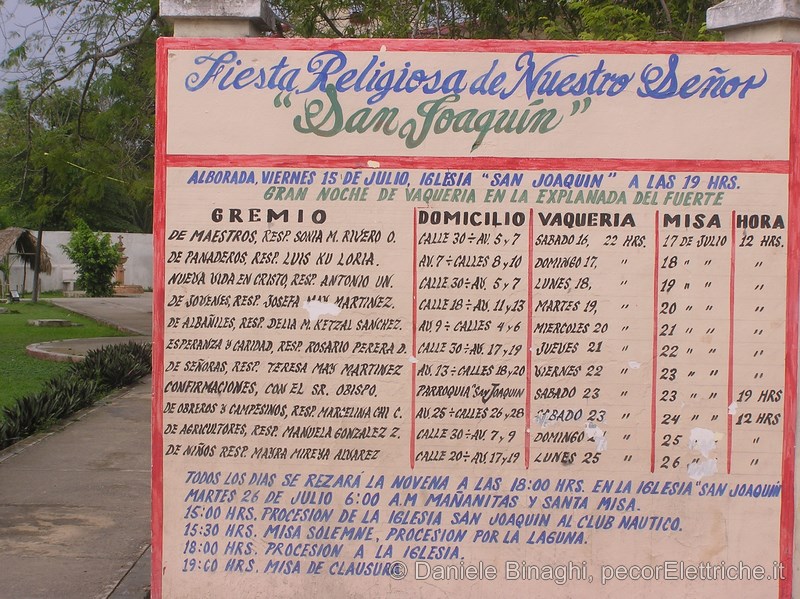 Fiesta Religiosa de Nuestro Señor
"San Joaquín"
ALBORADA, VIERNES 15 DE JULIO, IGLESIA "SAN JOAQUIN" A LAS 19 HRS.
GRAN NOCHE DE VAQUERIA EN LA EXPLANADA DEL FUERTE
GREMIO DOMICILIO VAQUERIA MISA HORA
DE MAESTROS, RESP. SONIA M. RIVERO O. CALLE 30 ÷ AV. 5 y 7 SABADO 16, 22 HRS. 17 DE JULIO 12 HRS.
DE PANADEROS, RESP. LUIS KU LORIA. AV. 7 ÷ CALLES 8 y 10 DOMINGO 17, " 18 " " "
NUEVA VIDA EN CRISTO, RESP. ANTONIO UN. CALLE 30 ÷ AV. 5 y 7 LUNES, 18, " 19 " " "
DE JOVENES, RESP. JOSEFA MAY MARTINEZ. CALLE 18 ÷ AV. 11 y 13 MARTES 19, " 20 " " "
DE ALBAÑILES, RESP. DELIA M. KETZAL SANCHEZ. AV. 9 ÷ CALLES 4 y 6 MIERCOLES 20 " 21 " " "
ESPERANZA Y CARIDAD, RESP. ROSARIO PERERA D. CALLE 30 ÷ AV. 17 y 19 JUEVES 21 " 22 " " "
DE SEÑORAS, RESP. TERESA MAY MARTINEZ AV. 13 ÷ CALLES 18 y 20 VIERNES 22 " 23 " " "
CONFIRMACIONES, CON EL SR. OBISPO. PARROQUIA "SAN JOAQUIN SABADO 23 " 23 " " 19 HRS
DE OBREROS Y CAMPESINOS, RESP. MARCELINA CHI C. AV. 25 ÷ CALLES 26 y 28 SABADO 23 " 24 " " 12 HRS
DE AGRICULTORES, RESP. MANUELA GONZALEZ Z. CALLE 30 ÷ AV. 7 y 9 DOMINGO 2 " 25 "
DE NIÑOS RESP. MAYRA MIREYA ALVAREZ CALLE 20 ÷ AV. 17 y 19 LUNES 25 " 26 "
TODOS LOS DIAS SE REZARÁ LA NOVENA A LAS 18:00 HRS. EN LA IGLESIA "SAN JOAQUIN
MARTES 26 DE JULIO 6:00 A.M MAÑANITAS Y SANTA MISA.
15:00 HRS. PROCESION DE LA IGLESIA SAN JOAQUIN AL CLUB NAUTICO.
15:30 HRS. MISA SOLEMNE, PROCESION POR LA LAGUNA.
18:00 HRS. PROCESION A LA IGLESIA.
19:00 HRS. MISA DE CLAUSURA
© Daniele Binaghi, pecorElettriche.it